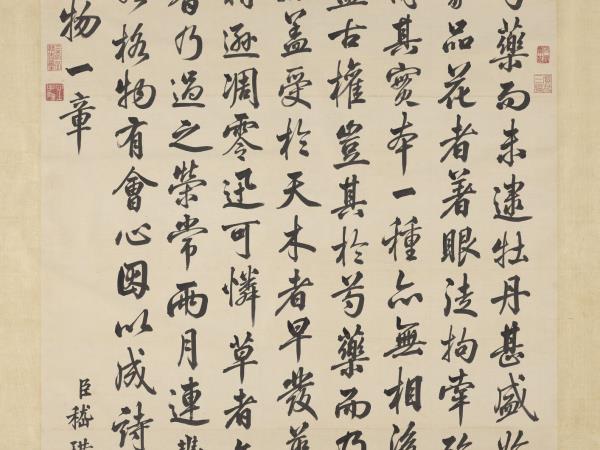 藥而未逮牡丹甚盛
品花者著眼徒拘牽
其實本一種亦無相
古權豈其於芍藥而乃
盖受於天木者早發
遜凋零迅可憐草者
乃過之榮常兩月連
格物有會心因以成詩
物一章
臣嵇